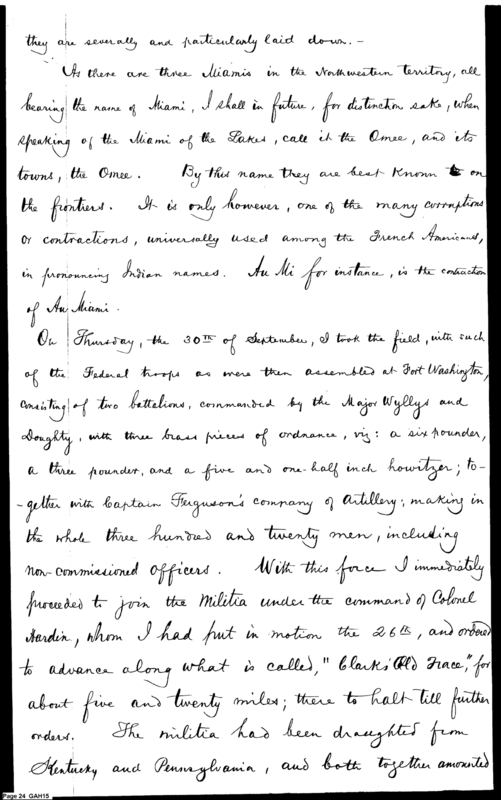 they are severally and particularly laid down. -
As there are three Miamis in the Northwestern territory, all
bearing the name of Miami, I shall in future, for distinction sake, when
speaking of the Miami of the Lakes, call it the Omee, and its
towns, the Omee. By this name they are best known on
the frontiers. It is only however, one of the many corruptions
or contractions, universally used among the French Americans,
in pronouncing Indian names. Au Mi for instance, is the contraction
of Au Miami.
On Thursday, the 30th of September, I took the field, with such
of the Federal troops as were then assembled at Fort Washington,
consisting of two battalions, commanded by the Major Wyllys and
Doughty, with three brass pieces of ordnance, viz: a six pounder,
a three pounder, and a five and one-half inch howitzer; to-
-gether with Captain Ferguson's company of Artillery; making in
the whole three hundred and twenty men, including
non-commissioned officers. With this force I immediately
proceeded to join the Militia under the command of Colonel
Hardin, whom I had put in motion the 26th, and ordered
to advance along what is called, "Clarks Old Trace," for
about five and twenty miles; there to halt till further
orders. The militia had been draughted from
Kentucky and Pennsylvania, and both together amounted
Page 24 GAH15